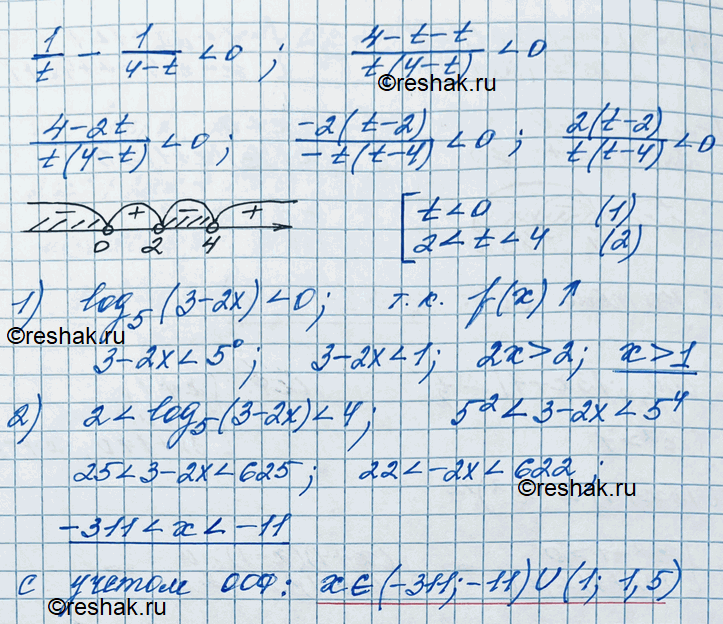 1/t - 1/(4-t) < 0 ; (4-t-t)/(t(4-t)) < 0
©reshak.ru
(4-2t)/(t(4-t)) < 0 ; (-2(t-2))/(-t(t-4)) < 0 ; (2(t-2))/(t(t-4)) < 0
- + - + [ t < 0 (1)
0 2 4 2 < t < 4 (2)
1) log₅(3-2x) < 0 ; т.к. f(x) ↑
©reshak.ru
3-2x < 5⁰ ; 3-2x < 1 ; 2x > 2 ; x > 1
2) 2 < log₅(3-2x) < 4 ; 5² < 3-2x < 5⁴
25 < 3-2x < 625 ; 22 < -2x < 622 ;
©reshak.ru
-311 < x < -11
с учетом ООФ: x ∈ (-311; -11) ∪ (1; 1,5)
©reshak.ru